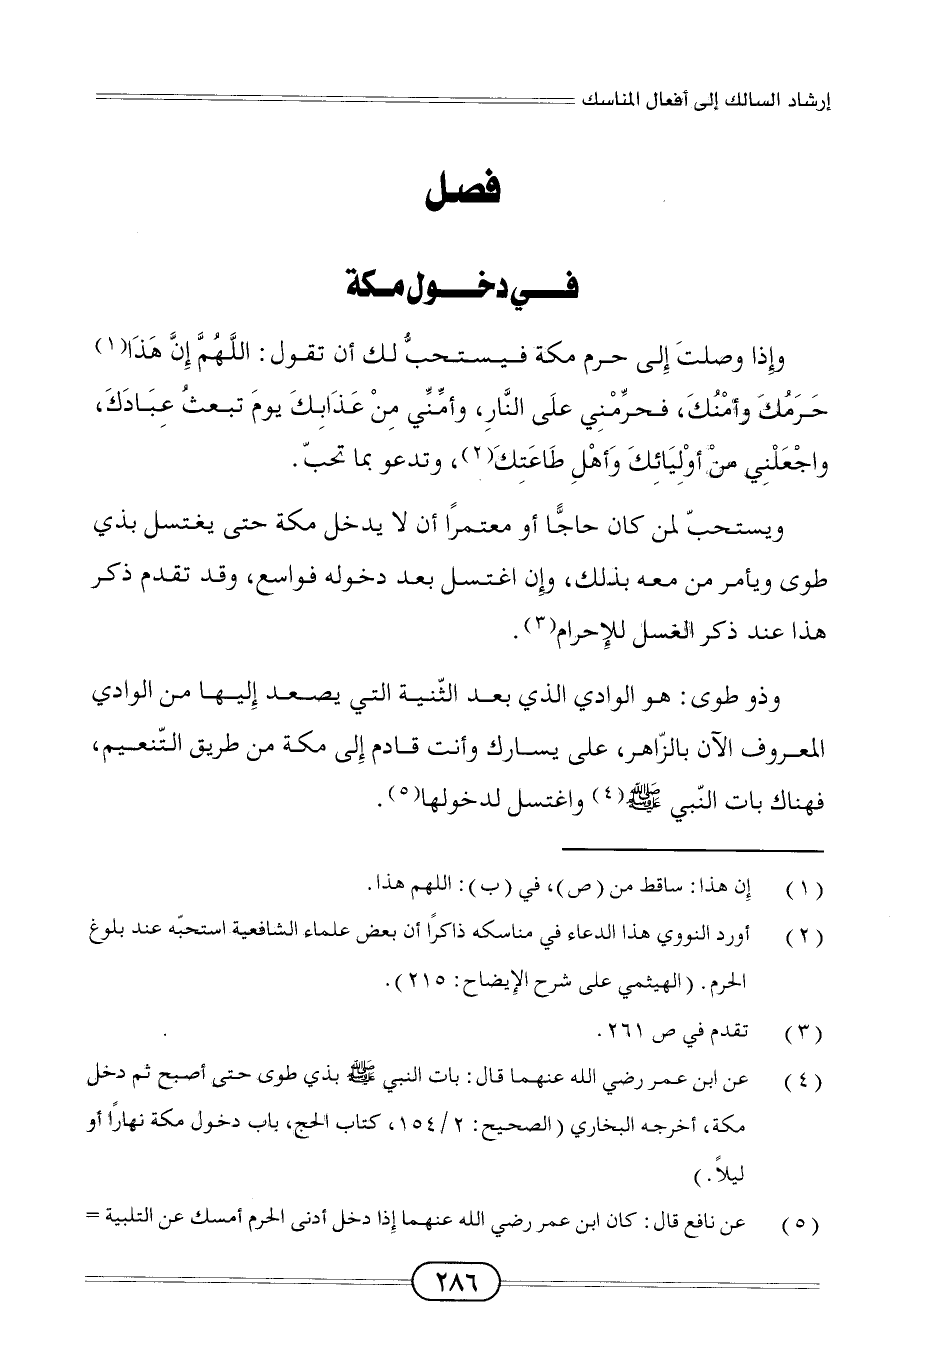 إرشاد السالك إلى أفعال المناسك
فصل
في دخول مكة
وإذا وصلتَ إلى حرم مكة فيستحبُّ لك أن تقول: اللَّهُمَّ إنَّ هَذَا(١)
حَرَمُكَ وأمْنُكَ، فحرِّمْني علَى النَّارِ، وأمِّنِّي مِنْ عَذَابِكَ يومَ تبعثُ عِبَادَكَ،
واجْعَلْنِي مِنْ أوْلِيَائِكَ وَأهْلِ طَاعَتِكَ(٢)، وتدعو بما تحبّ.
ويستحبّ لمن كان حاجًّا أو معتمرًا أن لا يدخل مكة حتى يغتسل بذي
طوى ويأمر من معه بذلك، وإن اغتسل بعد دخوله فواسع، وقد تقدم ذكر
هذا عند ذكر الغسل للإحرام(٣).
وذو طوى: هو الوادي الذي بعد الثّنية التي يصعد إليها من الوادي
المعروف الآن بالزّاهر، على يسارك وأنت قادم إلى مكة من طريق التّنعيم،
فهناك بات النّبي ﷺ(٤) واغتسل لدخولها(٥).
(١) إن هذا: ساقط من (ص)، في (ب): اللهم هذا.
(٢) أورد النووي هذا الدعاء في مناسكه ذاكرًا أن بعض علماء الشافعية استحبّه عند بلوغ
الحرم. (الهيثمي على شرح الإيضاح: ٢١٥).
(٣) تقدم في ص ٢٦١.
(٤) عن ابن عمر رضي الله عنهما قال: بات النبي ﷺ بذي طوى حتى أصبح ثم دخل
مكة، أخرجه البخاري (الصحيح: ٢/ ١٥٤، كتاب الحج، باب دخول مكة نهارًا أو
ليلاً.)
(٥) عن نافع قال: كان ابن عمر رضي الله عنهما إذا دخل أدنى الحرم أمسك عن التلبية =
٢٨٦